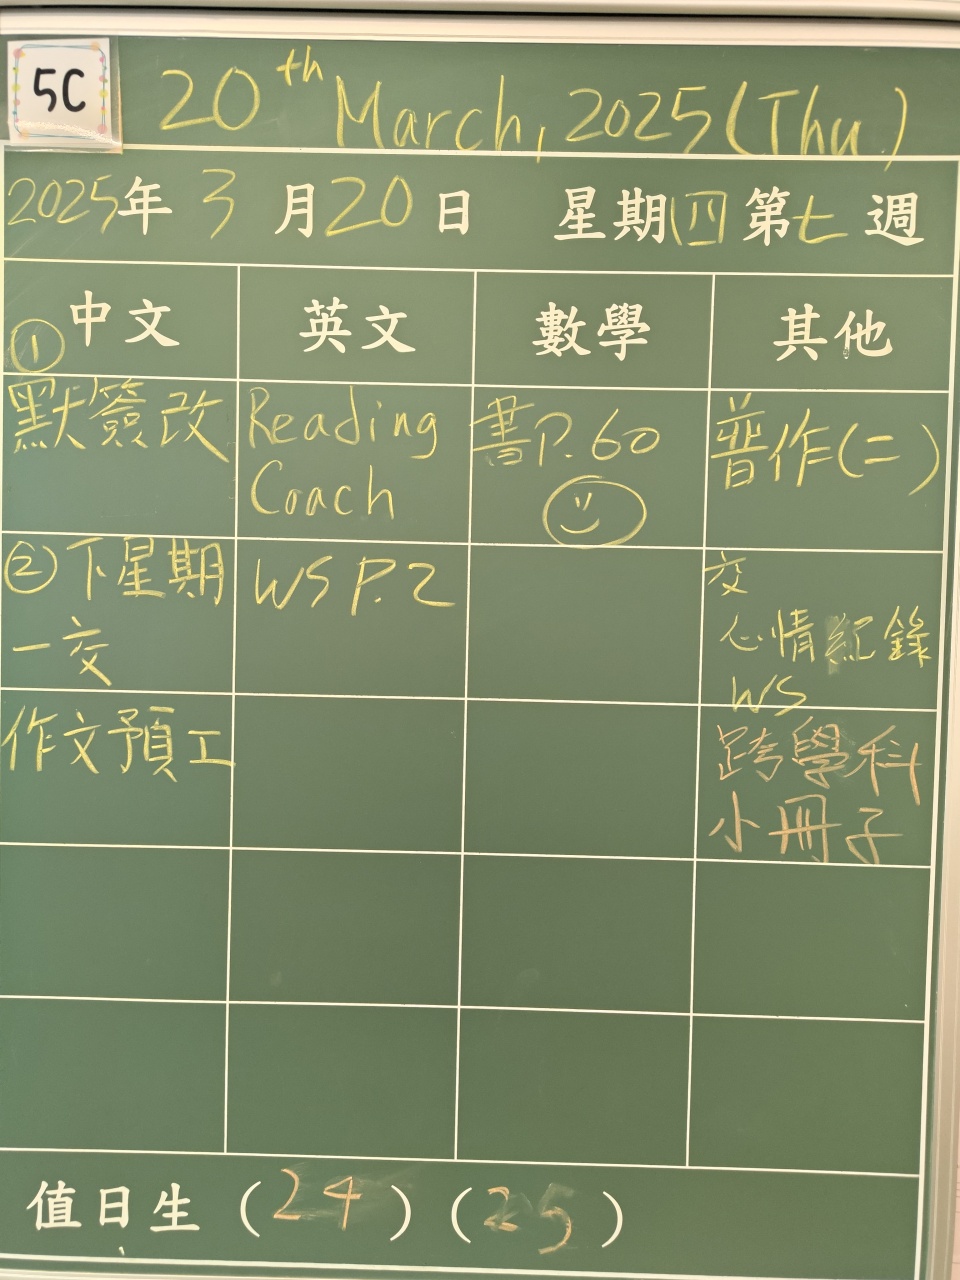 5C
20th March, 2025 (Thu)
2025年3月20日 星期四第七週
中文
英文
數學
其他
①
默簽改
Reading
Coach
書P.60
普作(二)
②下星期
一交
WS P.2
交
心情紀錄
WS
作文預工
跨學科
小冊子
值日生(24)(25)